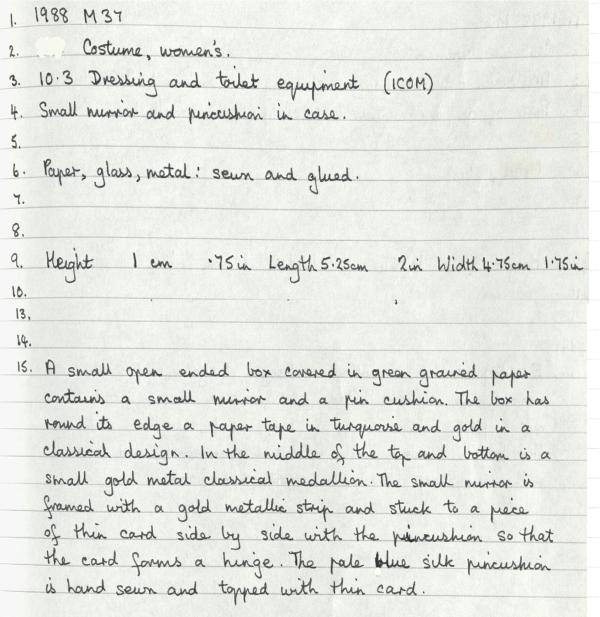 1. 1988 M37
2. Costume, women's.
3. 10.3 Dressing and toilet equipment (ICOM)
4. Small mirror and pincushion in case.
5.
6. Paper, glass, metal: sewn and glued.
7.
8.
9. Height 1 cm .75in Length 5.25cm 2in Width 4.75cm 1.75in
10.
13.
14.
15. A small open ended box covered in green grained paper
contains a small mirror and a pin cushion. The box has
round its edge a paper tape in turquoise and gold in a
classical design. In the middle of the top and bottom is a
small gold metal classical medallion. The small mirror is
framed with a gold metallic strip and stuck to a piece
of thin card side by side with the pincushion so that
the card forms a hinge. The pale blue silk pincushion
is hand sewn and topped with thin card.